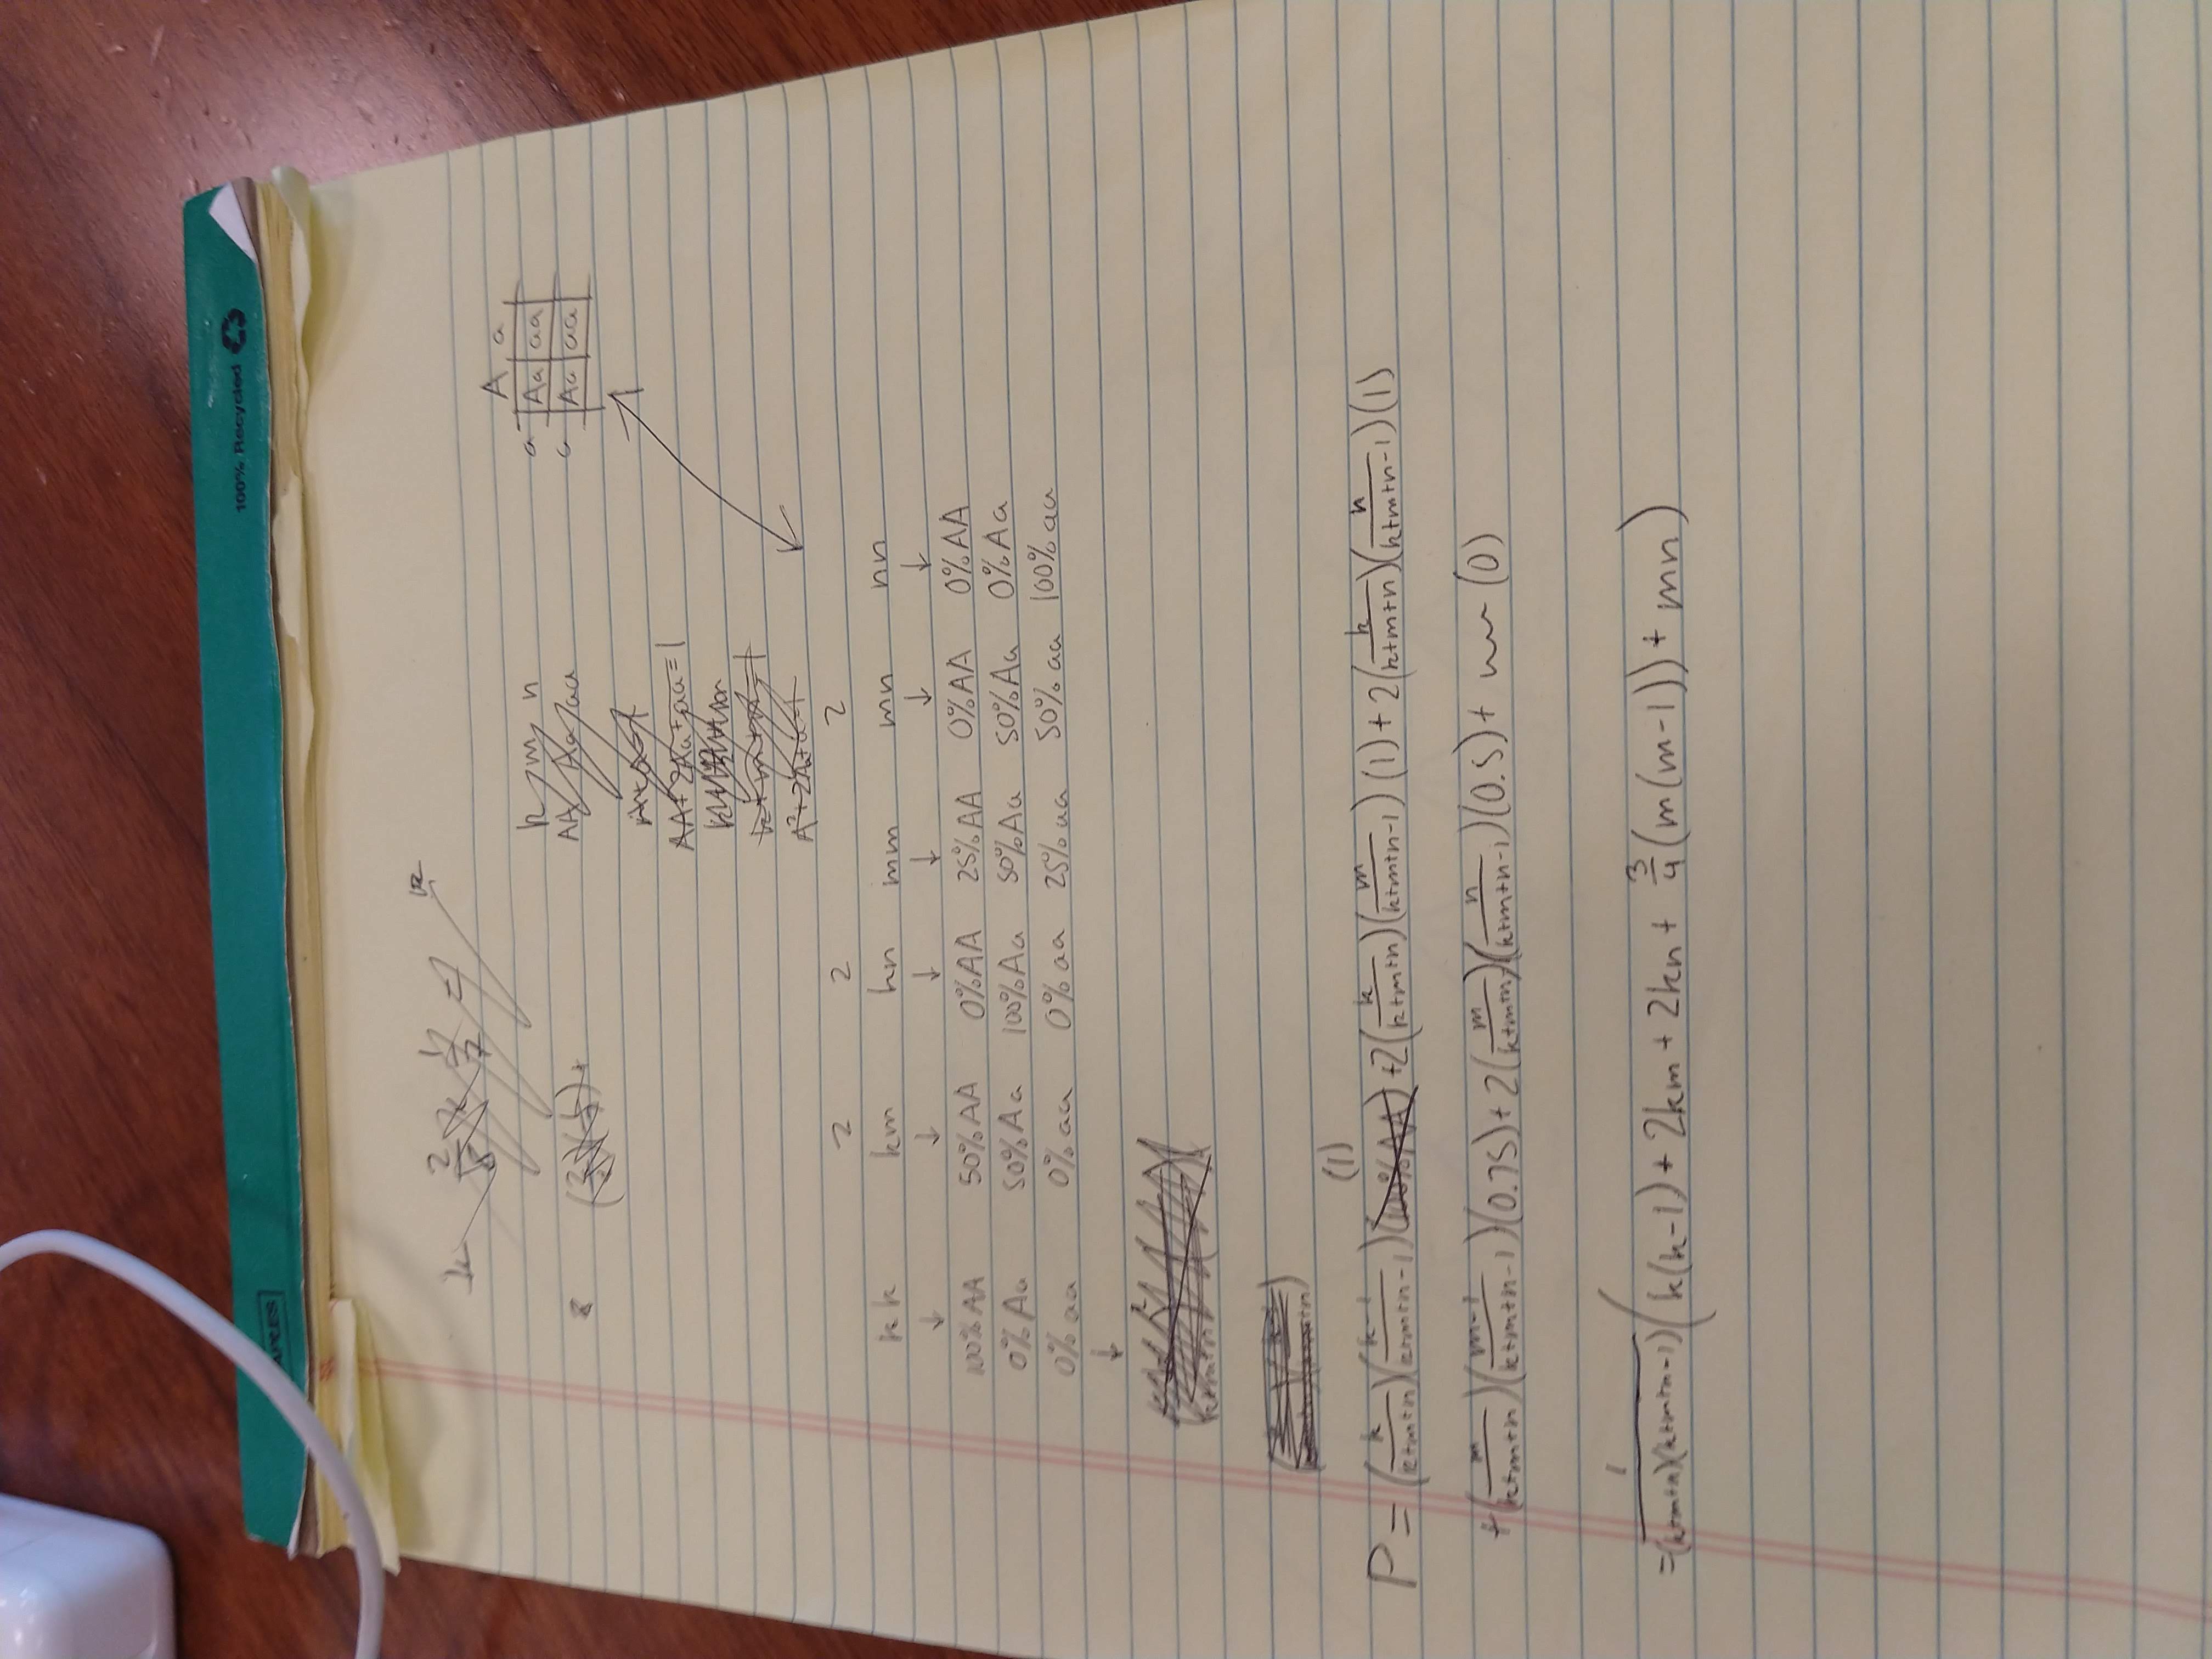 100% Recycled
APLES
k 2/8 x 1/7 =
A a
k m n
a Aa aa
AA Aa aa
a Aa aa
A+a=1
AA+2Aa+aa=1
k+m+n=1
A²+2A+a=1
2 2 2
kk km kn mm mn nn
↓ ↓ ↓ ↓ ↓ ↓
100% AA 50% AA 0% AA 25% AA 0% AA 0% AA
0% Aa 50% Aa 100% Aa 50% Aa 50% Aa 0% Aa
0% aa 0% aa 0% aa 25% aa 50% aa 100% aa
↓
k+m+n
(1)
P = (k/(k+m+n))((k-1)/(k+m+n-1))(100% AA) + 2(k/(k+m+n))(m/(k+m+n-1))(1) + 2(k/(k+m+n))(n/(k+m+n-1))(1)
+ (m/(k+m+n))((m-1)/(k+m+n-1))(0.75) + 2(m/(k+m+n))(n/(k+m+n-1))(0.5) + (0)
= 1/((k+m+n)(k+m+n-1)) (k(k-1) + 2km + 2kn + 3/4(m(m-1)) + mn)